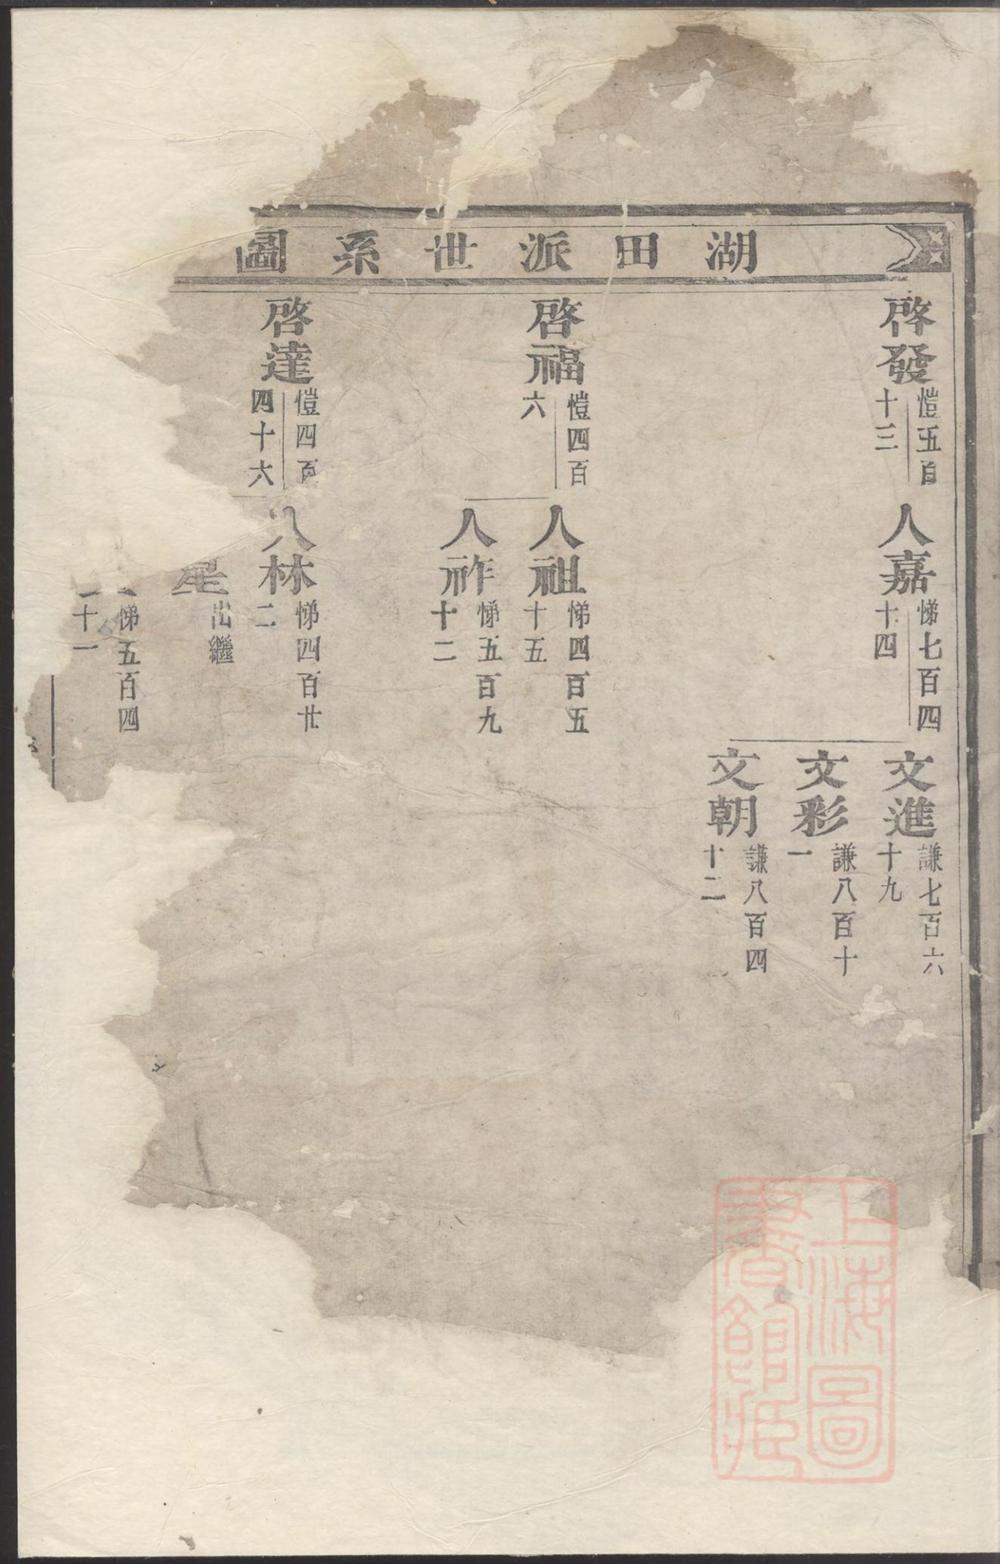 湖田派世系圖
啓發
愷五百
十三
人嘉
悌七百四
十四
文進
謙七百六
十九
文彩
謙八百十
一
文朝
謙八百四
十二
啓福
愷四百
六
人祖
悌四百五
十五
人祚
悌五百九
十二
啓達
愷四百
四十六
人林
悌四百廿
二
星
出繼
悌五百四
十一
上海圖
書館藏